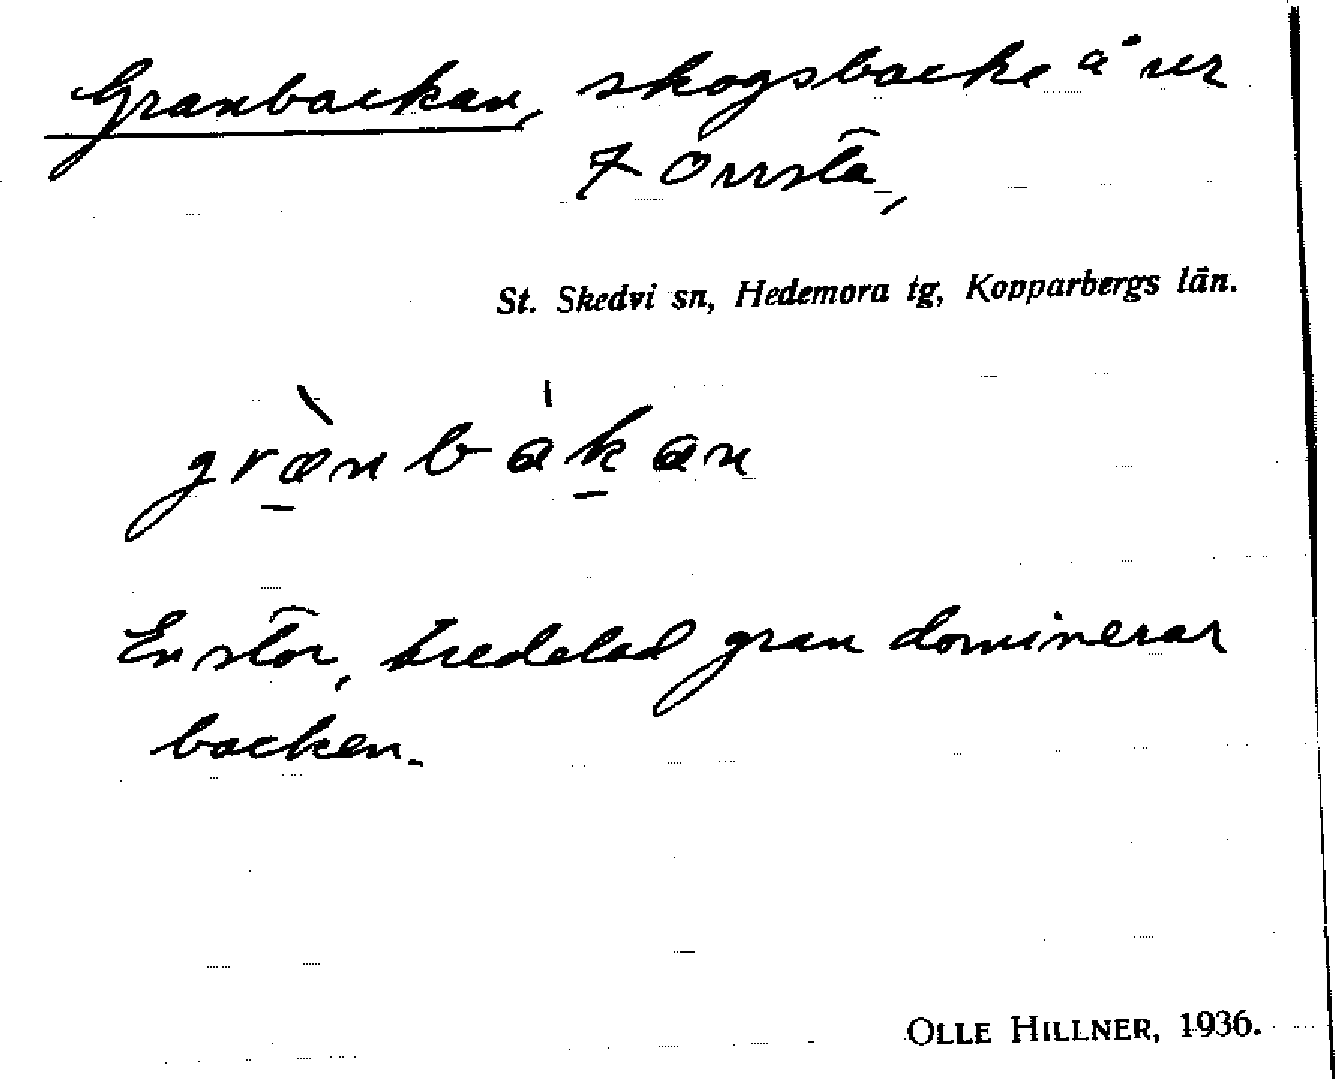 Granbackan, skogsbacke å rer
7 Orrsta,
St. Skedvi sn, Hedemora tg, Kopparbergs län.
grànbákan
En stor, tredelad gran dominerar
backen.
OLLE HILLNER, 1936.